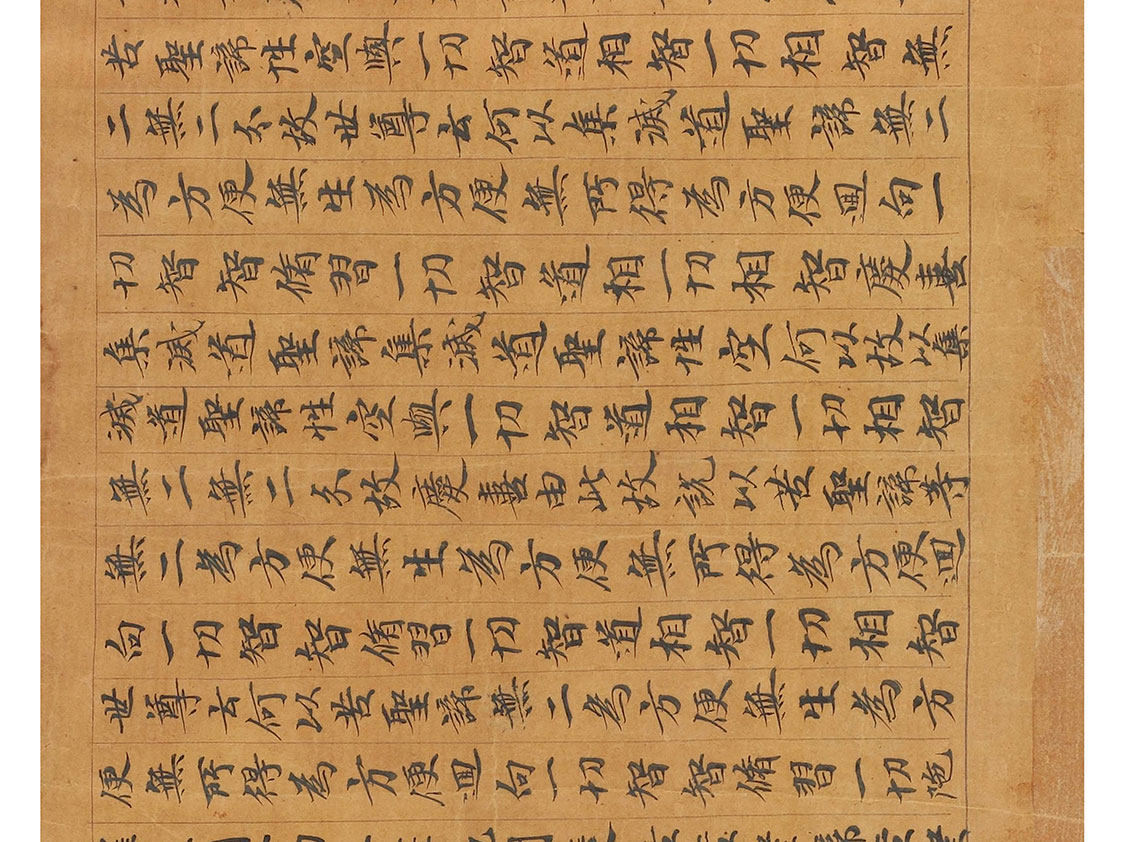 苦聖諦性空與一切智道相智一切相智無
二無二分故世尊云何以集滅道聖諦無二
為方便無生為方便無所得為方便迴向一
切智智脩習一切智道相一切相智慶喜
集滅道聖諦集滅道聖諦性空何以故以集
滅道聖諦性空與一切智道相智一切相智
無二無二分故慶喜由此故說以苦聖諦等
無二為方便無生為方便無所得為方便迴
向一切智智脩習一切智道相智一切相智
世尊云何以苦聖諦無二為方便無生為方
便無所得為方便迴向一切智智脩習一切陀